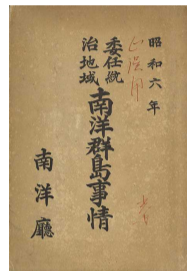 昭和六年
委任統
治地域
南洋群島事情
南洋廳